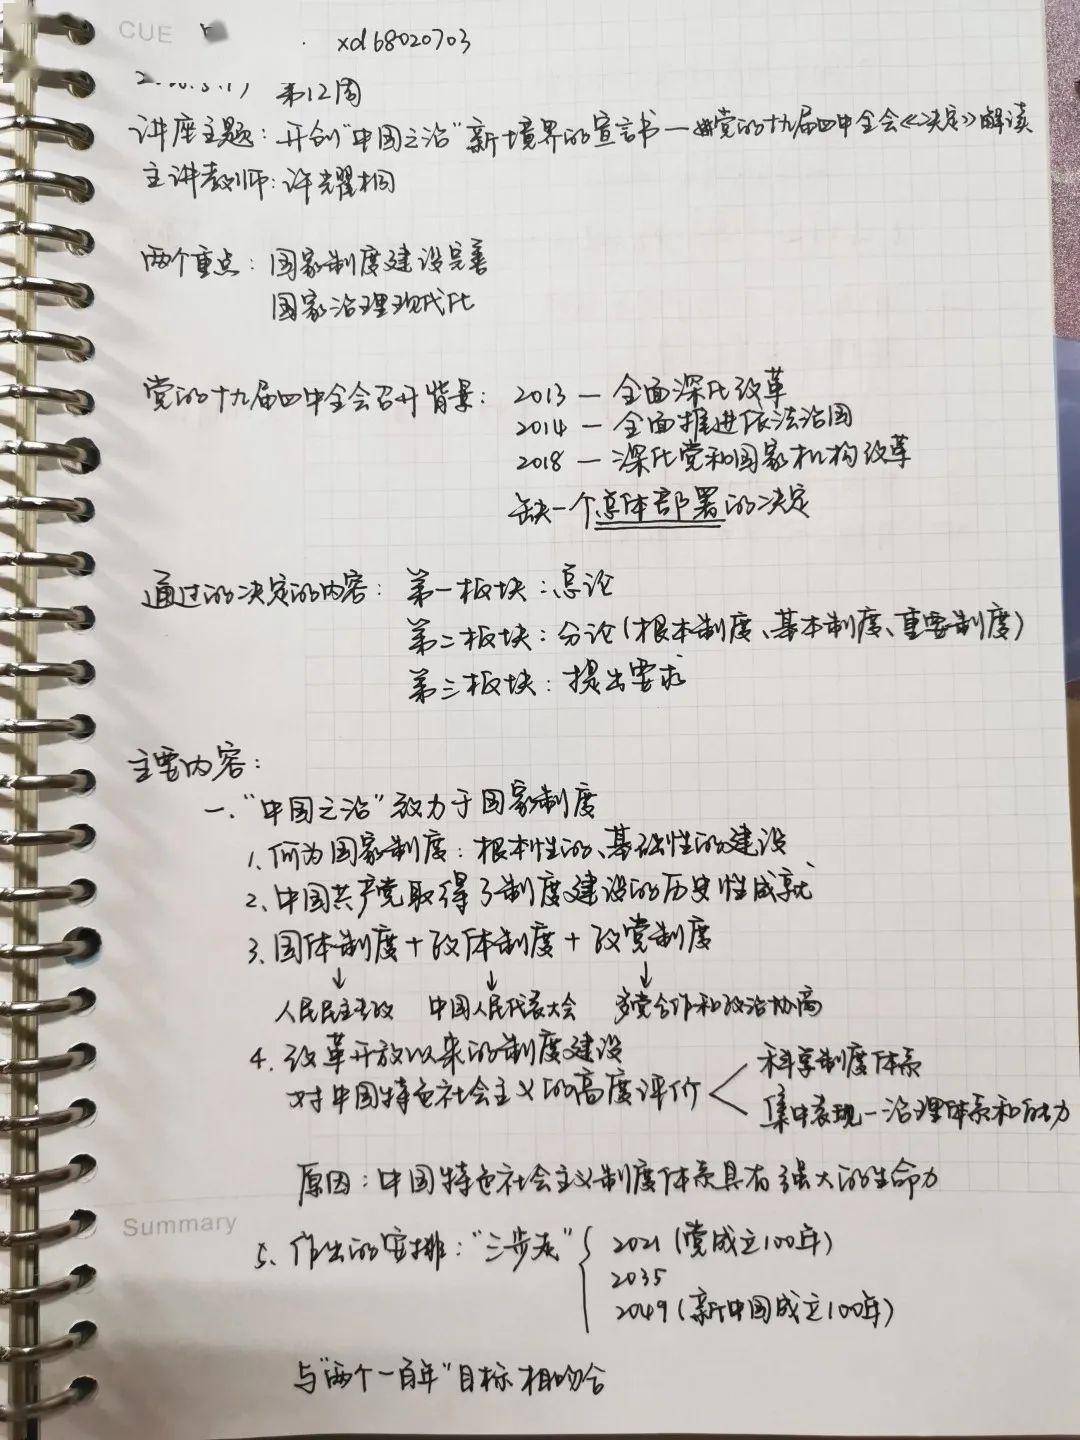 CUE
xd68020703
第12周
讲座主题：开创“中国之治”新境界的宣言书—党的十九届四中全会《决定》解读
主讲教师：许耀桐
两个重点：国家制度建设完善
国家治理现代化
党的十九届四中全会召开背景：2013—全面深化改革
2014—全面推进依法治国
2018—深化党和国家机构改革
缺一个总体部署的决定
通过的决定的内容：第一板块：总论
第二板块：分论(根本制度、基本制度、重要制度)
第三板块：提出要求
主要内容：
一、“中国之治”致力于国家制度
1、何为国家制度：根本性的、基础性的建设
2、中国共产党取得了制度建设的历史性成就
3、国体制度+政体制度+政党制度
↓ ↓ ↓
人民民主专政 中国人民代表大会 多党合作和政治协商
4、改革开放以来的制度建设
科学制度体系
对中国特色社会主义的高度评价
集中表现—治理体系和能力
原因：中国特色社会主义制度体系具有强大的生命力
Summary
5、作出的安排：“三步走” 2021(党成立100年)
2035
2049(新中国成立100年)
与“两个一百年”目标相吻合